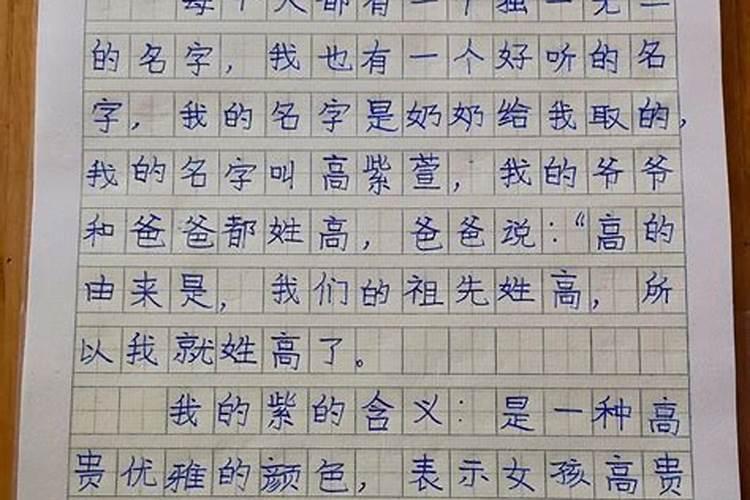 每个人都有一个独一无二
的名字，我也有一个好听的名
字，我的名字是奶奶给我取的，
我的名字叫高紫萱，我的爷爷
和爸爸都姓高，爸爸说：“高的
由来是，我们的祖先姓高，所
以我就姓高了。
我的紫的含义：是一种高
贵优雅的颜色，表示女孩高贵